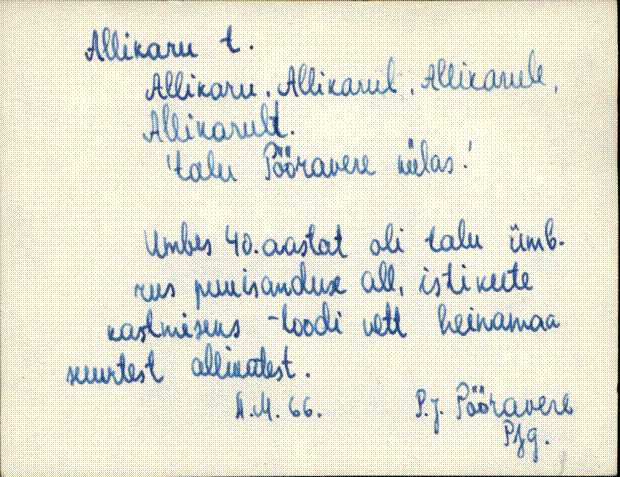 Allikaru t.
Allikaru, Allikarul, Allikarule,
Allikarult.
'talu Pööravere külas.'
Umbes 40. aastat oli talu ümb-
rus puuisanduse all, istikute
kastmiseks toodi vett heinamaa
suurtest allikatest.
A.M. 66. P.J. Pööravere
Pjg.